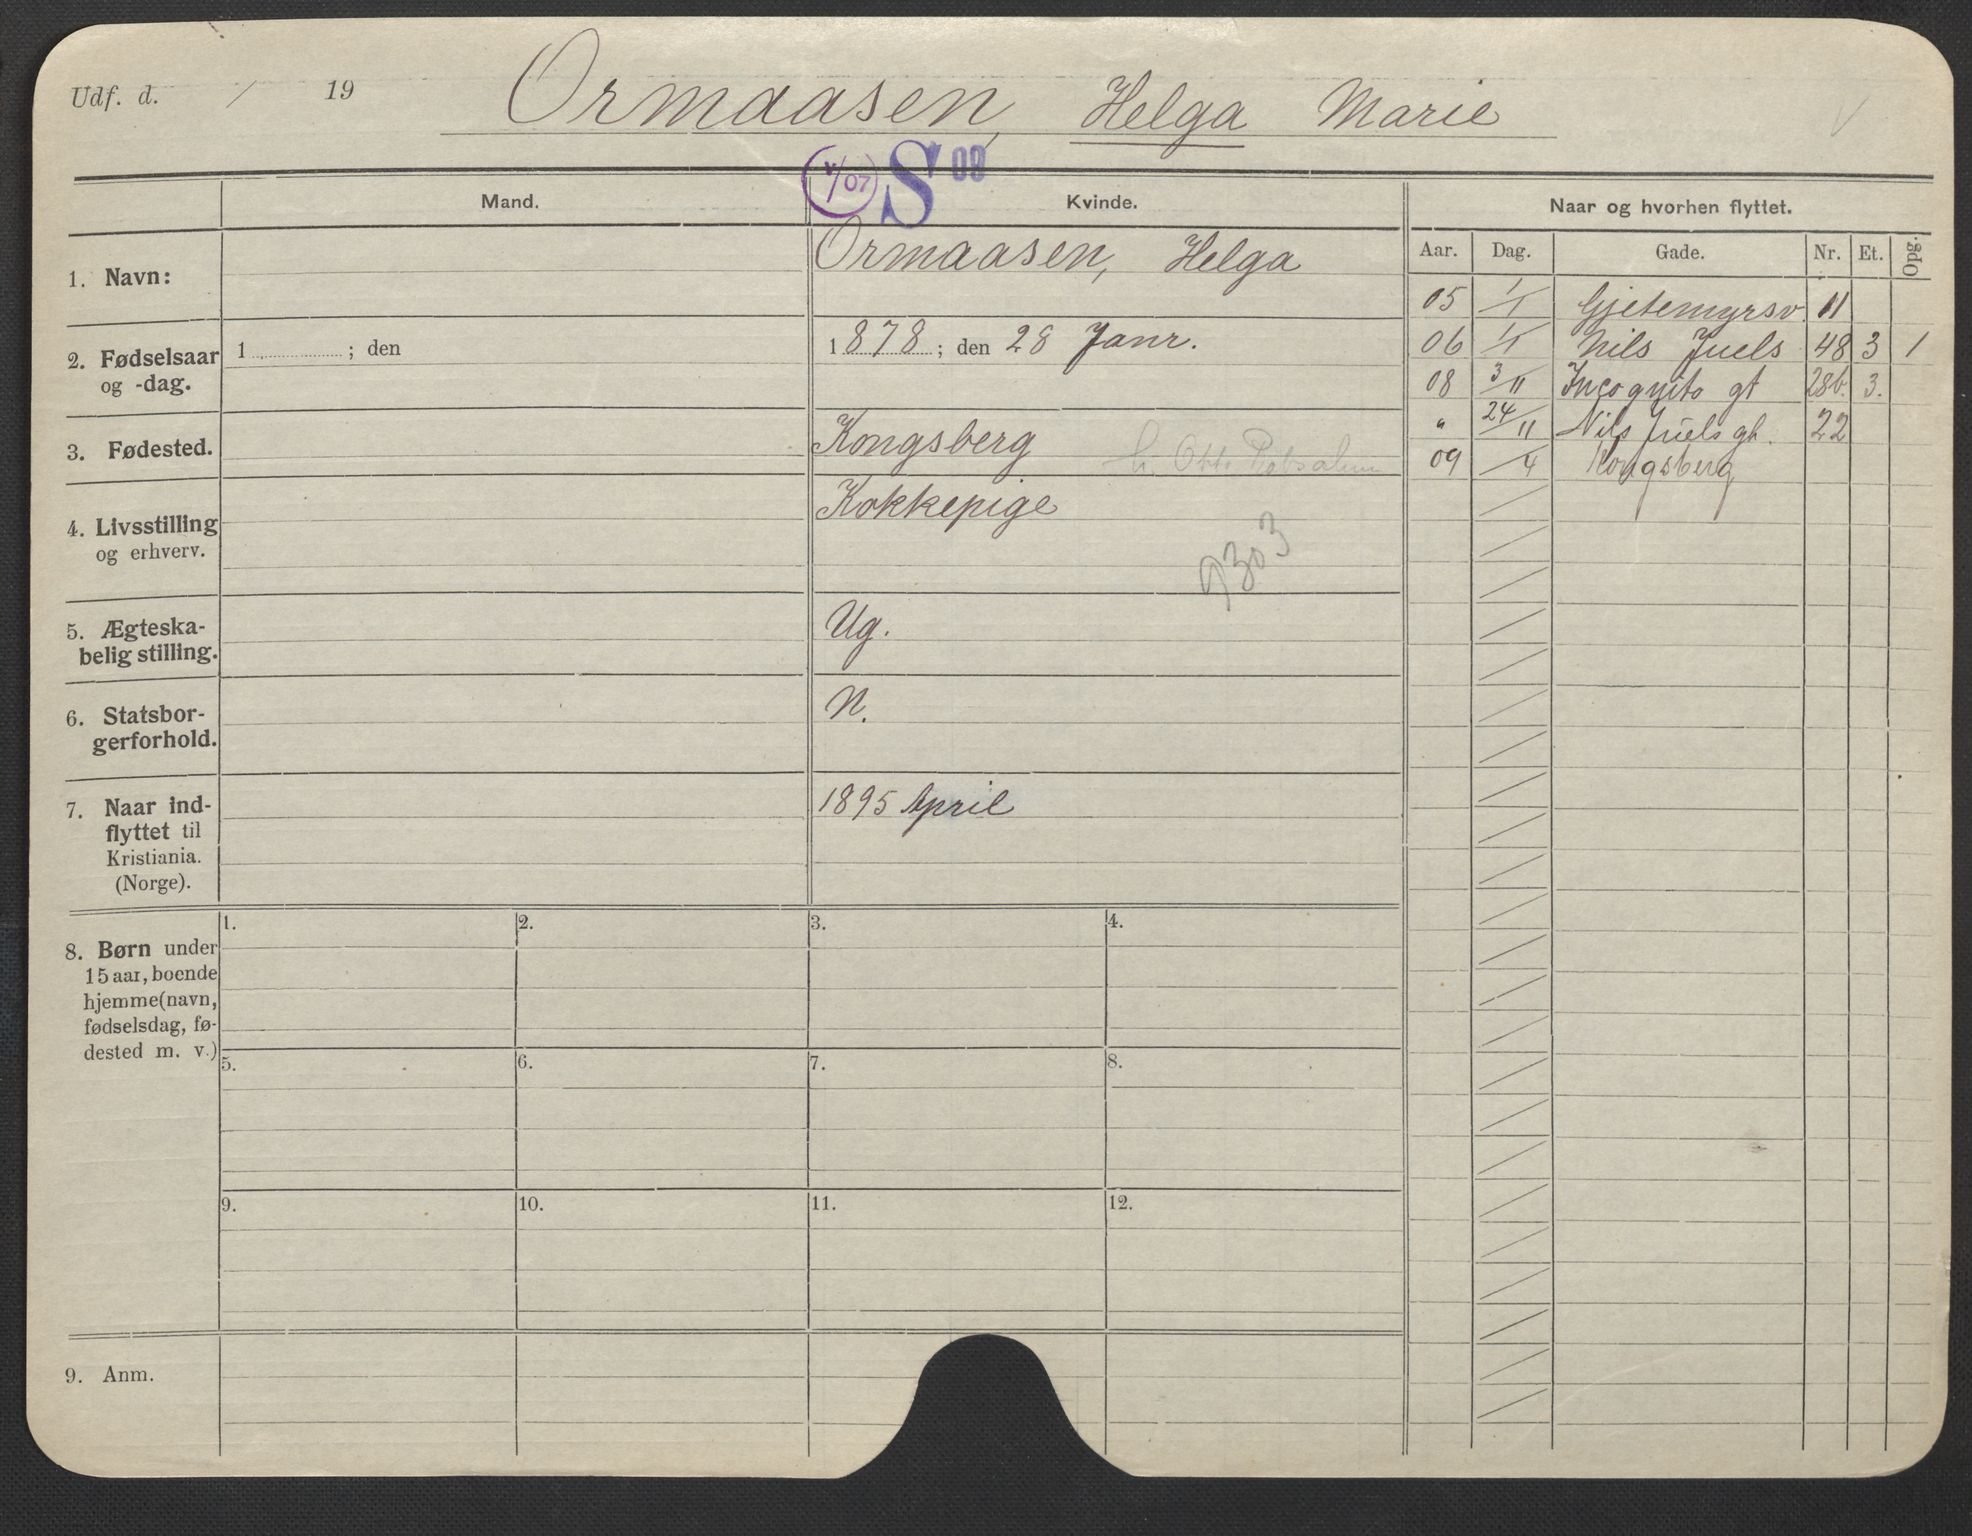 Udf. d. / 19
Ormaasen, Helga Marie
V/07 S 08
Mand. Kvinde. Naar og hvorhen flyttet.
Aar. Dag. Gade. Nr. Et. Opg.
1. Navn: Ormaasen, Helga
05 1/1 Gjetemyrsv. 11
06 1/1 Nils Juels 48 3 1
08 3/11 Incognito gt 28b. 3.
" 24/11 Nils Juels gt. 22
09 /4 Kongsberg
2. Fødselsaar og -dag.
1 ; den
1878; den 28 Janr.
3. Fødested. Kongsberg
h. Otto
4. Livsstilling og erhverv.
Kokkepige
9303
5. Ægteska-
belig stilling.
Ug.
6. Statsbor-
gerforhold.
N.
7. Naar ind-
flyttet til
Kristiania.
(Norge).
1895 April
8. Børn under
15 aar, boende
hjemme (navn,
fødselsdag, fø-
dested m. v.)
1. 2. 3. 4.
5. 6. 7. 8.
9. 10. 11. 12.
9. Anm.